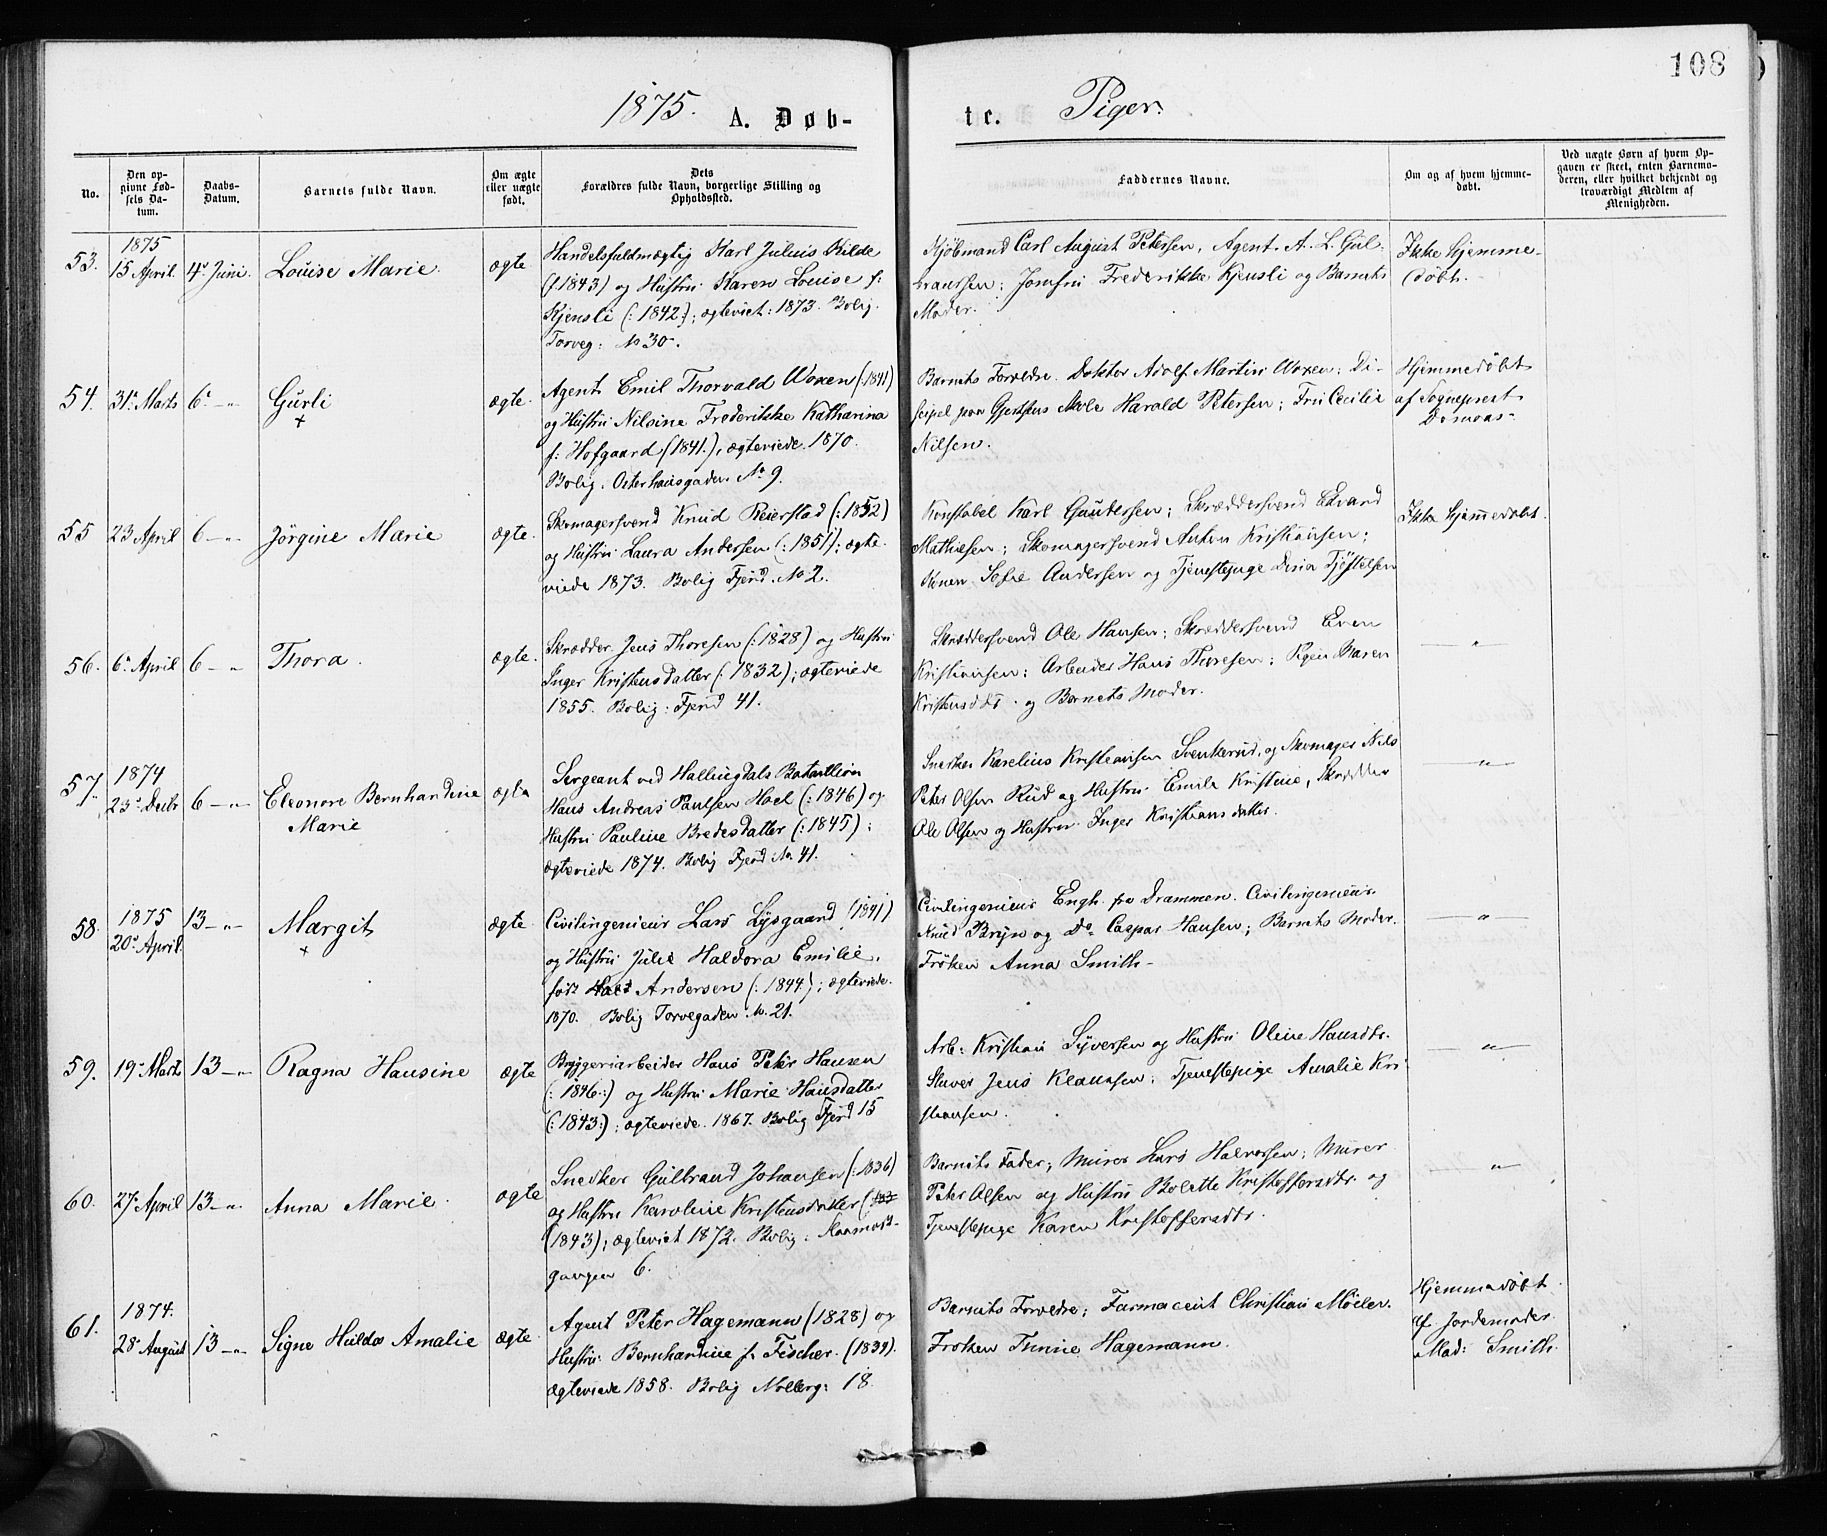 108
1875. A. Døb-
te. Piger.
No.
Den op-
givne Fød-
sels Da-
tum.
Daabs-
Datum.
Barnets fulde Navn.
Om ægte
eller uægte
født.
Dets
Forældres fulde Navn, borgerlige Stilling og
Opholdssted.
Faddernes Navne.
Om og af hvem hjemme-
døbt.
Ved uægte Børn af hvem Op-
gaven er skeet, enten Barnemo-
deren, eller hvilket bekjendt og
troværdigt Medlem af
Menigheden.
53.
1875
15 April.
4de Juni
Louise Marie.
ægte
Handelsfuldmægtig Karl Julius Kilde
(:1843) og Hustru Karen Louise f:
Kjensli (:1842:); ægteviet: 1873. Bolig.
Torveg: No 30.
Kjøbmand Carl August Petersen, Agent. A. L. Gul-
brandsen; Jomfru Frederikke Kjensli og Barnets
Moder.
Ikke hjemme-
døbt.
54.
31te Marts
6te -"-
Gurli
+
ægte.
Agent Emil Thorvald Woxen (:1841)
og Hustru Nilsine Frederikke Katharina
f: Hofgaard (1841.), ægteviede. 1870.
Bolig: Osterhausgaden. No 9.
Barnets Forældre. Doktor Adolf Martin Woxen; Di-
scipel paa Gjertsens Skole Harald Petersen; Fru Cecilie
Nilsen.
Hjemmedøbt
af Sogneprest
55
23 April
6 -"-
Jørgine Marie
ægte.
Skomagersvend Knud Reierstad (:1852)
og Hustru Laura Andersen (:1851); ægte-
viede 1873. Bolig Fjerd. No 2.
Konstabel Karl Gundersen; Skræddersvend Edvard
Mathiesen; Skomagersvend Anton Kristiansen;
Konen Sofie Andersen og Tjenestepige Dina Tjøstelsen
Ikke hjemmedøbt.
56.
6te April
6 -"-
Thora.
ægte.
Skrædder Jens Thoresen (:1828) og Hustru
Inger Kristensdatter (:1832); ægteviede
1855. Bolig: Fjerd 41.
Skræddersvend Ole Hansen; Skræddersvend Even
Kristiansen; Arbeider Hans Thoresen; Pigen Maren
Kristensdtr. og Barnets Moder.
-"-
57.
1874
23de Decbr
6 -"-
Eleonore Bernhardine
Marie
ægte
Sergeant ved Hallingdals Batallion
Hans Andreas Paulsen Hoel (:1846) og
Hustru Pauline Bredesdatter (:1845);
ægteviede 1874. Bolig Fjerd No. 41.
Snedker Karelius Kristiansen Svenkerud, og Skomager Nils
Peter Olsen Rud og Hustru Emilie Kristine, Skrædder
Ole Olsen og Hustru Inger Kristiansdatter.
-"-
58.
1875
20de April
13 -"-
Margit
+
ægte
Civilingenieur Lars Lysgaard (1841)
og Hustru Julie Haldora Emilie,
født Andersen (:1844.); ægteviede.
1870. Bolig Torvegaden: N. 21.
Civilingenieur Engh. fra Drammen. Civilingenieur
Knud Bryn og Do Caspar Hansen; Barnets Moder.
Frøken Anna Smith.
-"-
59.
19de Marts
13 -"-
Ragna Hansine
ægte
Bryggeriarbeider Hans Peter Hansen
(:1846:) og Hustru Marie Hansdatter
(:1843:); ægteviede. 1867. Bolig Fjerd 15
Arb: Kristian Syversen og Hustru Oline Hansdtr.
Stuver Jens Klausen; Tjenestepige Amalie Kri-
stiansen.
-"-
60.
27de April
13 -"-
Anna Marie.
ægte
Snedker Gulbrand Johansen (:1836)
og Hustru Karoline Kristensdatter
(1843); ægteviet 1872. Bolig.
gangen 6.
Barnets Fader; Murer Lars Halvorsen; Murer
Peter Olsen og Hustru Bolette Kristoffersdtr. og
Tjenestepige Karen Kristoffersdtr.
-"-
61.
1874.
28de August
13 -"-
Signe Hulda Amalie
ægte
Agent Peter Hagemann (1828) og
Hustru Bernhardine f. Fischer. (1839).
ægteviede 1858. Bolig Møllerg: 18.
Barnets Forældre; Farmaceut Christian Møller.
Frøken Thinne Hagemann.
Hjemmedøbt
af Jordemoder
Mad: Smith.